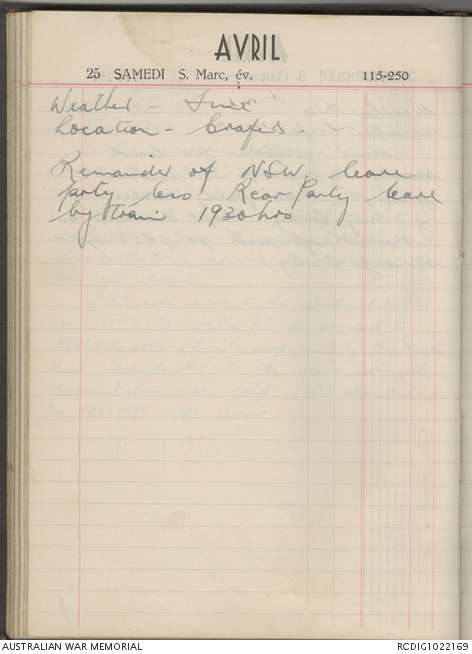 AVRIL
25 SAMEDI S. Marc, év. 115-250
Weather - Fine
Location - Crafers -
Remainder of NSW. leave
prty less Rear Party leave
by train 1930hrs
AUSTRALIAN WAR MEMORIAL RCDIG1022169